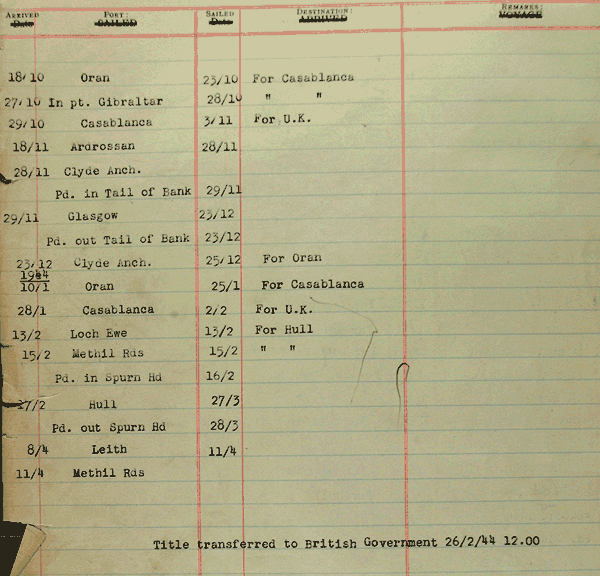 ARRIVED PORT: SAILED DESTINATION: REMARKS:
Date SAILED Date ARRIVED VOYAGE
18/10 Oran 23/10 For Casablanca
27/10 In pt. Gibraltar 28/10 " "
29/10 Casablanca 3/11 For U.K.
18/11 Ardrossan 28/11
28/11 Clyde Anch.
Pd. in Tail of Bank 29/11
29/11 Glasgow 23/12
Pd. out Tail of Bank 23/12
23/12 Clyde Anch. 25/12 For Oran
1944
10/1 Oran 25/1 For Casablanca
28/1 Casablanca 2/2 For U.K.
13/2 Loch Ewe 13/2 For Hull
15/2 Methil Rds 15/2 " "
Pd. in Spurn Hd 16/2
17/2 Hull 27/3
Pd. out Spurn Hd 28/3
8/4 Leith 11/4
11/4 Methil Rds
Title transferred to British Government 26/2/44 12.00